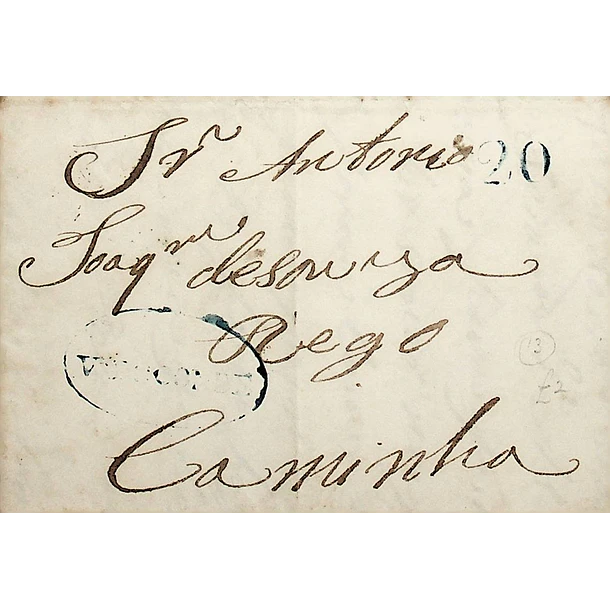 Sr Antonio 20
Joaqm desouza
Rego
Caminha
13
£2